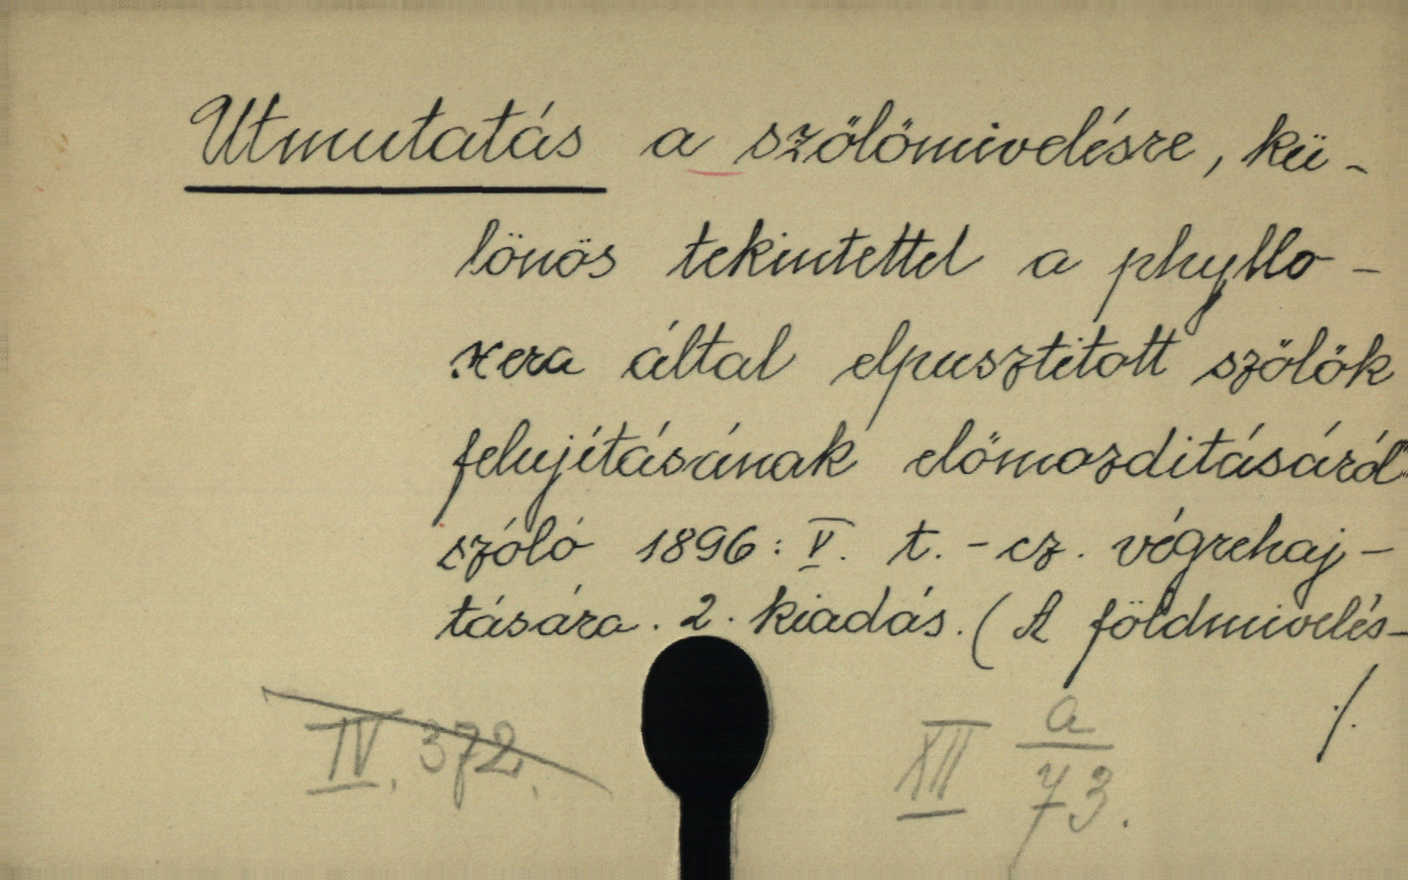 Utmutatás a szőlőmivelésre, kü-
lönös tekintettel a phyllo-
xera által elpusztitott szőlők
felujításának előmozditásáról
szóló 1896: V. t.-cz. végrehaj-
tására. 2. kiadás. (A földmivelés-
./.
IV. 372.
XII a/73.